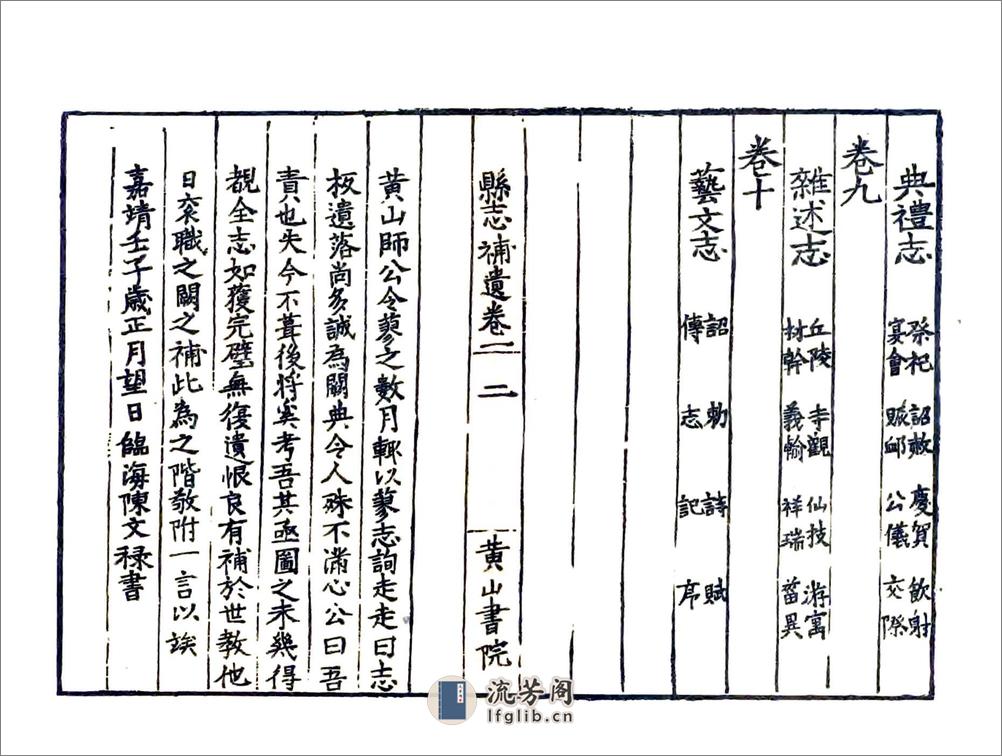 典禮志 祭祀 詔赦 慶賀 飲射
宴會 賑卹 公儀 交際
卷九
雜述志 丘陵 寺觀 仙技 游寓
材幹 義輸 祥瑞 菑異
卷十
藝文志 詔 勅 詩 賦
傳 志 記 序
縣志補遺卷一 二 黃山書院
黃山師公令蓼之數月輒以蓼志詢走走曰志
板遺落尚多誠為闕典令人殊不滿心公曰吾
責也失今不葺後將奚考吾其亟圖之未幾得
覩全志如獲完璧無復遺恨良有補於世教他
日衮職之闕之補此為之階敬附一言以俟
嘉靖壬子歲正月望日臨海陳文祿書
流芳阁
lfglib.cn